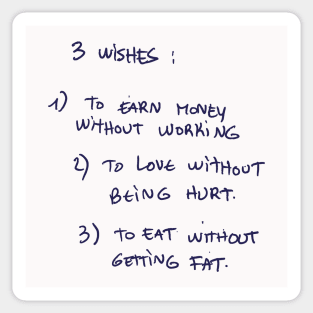 3 WISHES :
1) TO EARN MONEY
WITHOUT WORKING
2) TO LOVE WITHOUT
BEING HURT.
3) TO EAT WITHOUT
GETTING FAT.